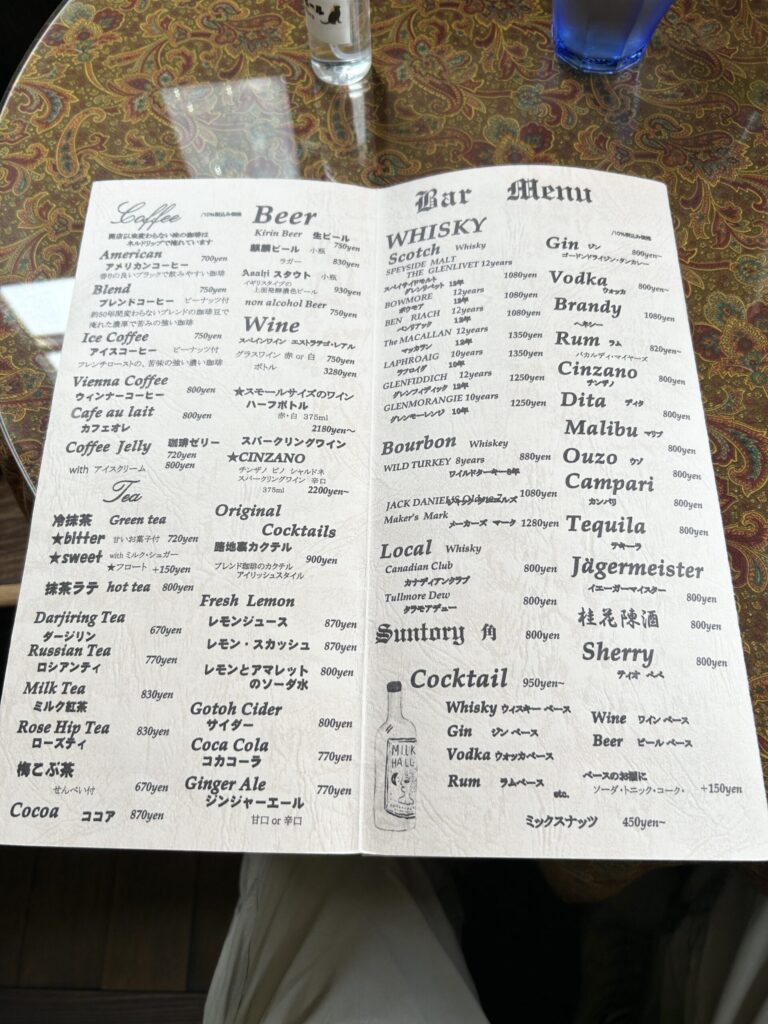 Coffee /10%税込み価格
開店以来変わらない味の珈琲は
ネルドリップで淹れています
American 700yen
アメリカンコーヒー
香りの良いブラックで飲みやすい珈琲
Blend 750yen
ブレンドコーヒー ピーナッツ付
約50年間変わらないブレンドの珈琲豆で
淹れた濃厚で苦みの強い珈琲
Ice Coffee 750yen
アイスコーヒー ピーナッツ付
フレンチローストの、苦味の強い濃い珈琲
Vienna Coffee 800yen
ウィンナーコーヒー
Cafe au lait 800yen
カフェオレ
Coffee Jelly 珈琲ゼリー
720yen
with アイスクリーム 800yen
Tea
冷抹茶 Green tea
★bitter 甘いお菓子付 720yen
★sweet with ミルク・シュガー
★フロート +150yen
抹茶ラテ hot tea 800yen
Darjiring Tea
ダージリン 670yen
Russian Tea
ロシアンティ 770yen
Milk Tea
ミルク紅茶 830yen
Rose Hip Tea 830yen
ローズティ
梅こぶ茶
せんべい付 670yen
Cocoa ココア 870yen
Beer
Kirin Beer 生ビール
750yen
麒麟ビール 小瓶
ラガー 830yen
Asahi スタウト 小瓶
イギリスタイプの
上面発酵濃色ビール 930yen
non alcohol Beer
750yen
Wine
スペインワイン エストラテゴ・レアル
グラスワイン 赤 or 白 750yen
ボトル 3280yen
★スモールサイズのワイン
ハーフボトル
赤・白 375ml
2180yen~
スパークリングワイン
★CINZANO
チンザノ ピノ シャルドネ
スパークリングワイン 辛口
375ml 2200yen~
Original
Cocktails
路地裏カクテル
900yen
ブレンド珈琲のカクテル
アイリッシュスタイル
Fresh Lemon
レモンジュース 870yen
レモン・スカッシュ 870yen
レモンとアマレット 800yen
のソーダ水
Gotoh Cider
サイダー 800yen
Coca Cola
コカコーラ 770yen
Ginger Ale 770yen
ジンジャーエール
甘口 or 辛口
Bar Menu
WHISKY
Scotch Whisky
SPEYSIDE MALT
THE GLENLIVET 12years
スペイサイドモルト
グレンリベット 12年 1080yen
BOWMORE 12years
ボウモア 12年 1080yen
BEN RIACH 12years
ベンリアック 12年 1080yen
The MACALLAN 12years
マッカラン 12年 1350yen
LAPHROAIG 10years
ラフロイグ 10年 1350yen
GLENFIDDICH 12years
グレンフィディック 12年 1250yen
GLENMORANGIE 10years
グレンモーレンジ 10年 1250yen
Bourbon Whiskey
WILD TURKEY 8years 880yen
ワイルドターキー8年
JACK DANIELS 1080yen
Maker's Mark
メーカーズ マーク 1280yen
Local Whisky
Canadian Club 800yen
カナディアンクラブ
Tullmore Dew 800yen
タラモアデュー
Suntory 角 800yen
/10%税込み価格
Gin ジン 800yen~
ゴードンドライジン・タンカレー
Vodka 800yen~
ウォッカ
Brandy 1080yen
ヘネシー
Rum ラム 820yen~
バカルディ・マイヤーズ
Cinzano
チンザノ 800yen
Dita ディタ
800yen
Malibu マリブ
800yen
Ouzo ウゾ
800yen
Campari
カンパリ 800yen
Tequila 800yen
テキーラ
Jägermeister
イエーガーマイスター
800yen
桂花陳酒 800yen
Sherry
ティオ ペペ 800yen
Cocktail 950yen~
Whisky ウィスキー ベース
Gin ジン ベース
Vodka ウォッカベース
Rum ラムベース
etc.
Wine ワイン ベース
Beer ビール ベース
ベースのお酒に
ソーダ・トニック・コーク・ +150yen
ミックスナッツ 450yen~
MILK
HALL